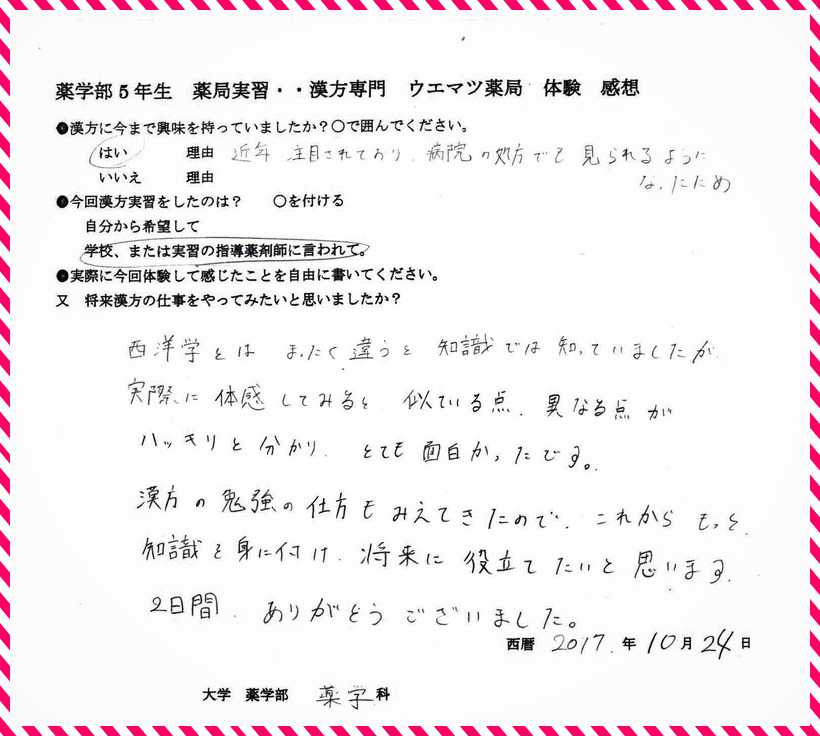 薬学部5年生　薬局実習・・漢方専門　ウエマツ薬局　体験　感想
●漢方に今まで興味を持っていましたか？〇で囲んでください。
はい　理由　近年 注目されており、病院の処方でも見られるように
なったため
いいえ　理由
●今回漢方実習をしたのは？　〇を付ける
自分から希望して
学校、または実習の指導薬剤師に言われて。
●実際に今回体験して感じたことを自由に書いてください。
又　将来漢方の仕事をやってみたいと思いましたか？
西洋学とは まったく違うと 知識では知っていましたが、
実際に体感してみると 似ている点、異なる点が
ハッキリと分かり、とても面白かったです。
漢方の勉強の仕方もみえてきたので、これからもっと、
知識を身に付け、将来に役立てたいと思います。
2日間、ありがとうございました。
西暦 2017 年 10 月 24 日
大学　薬学部　薬学科